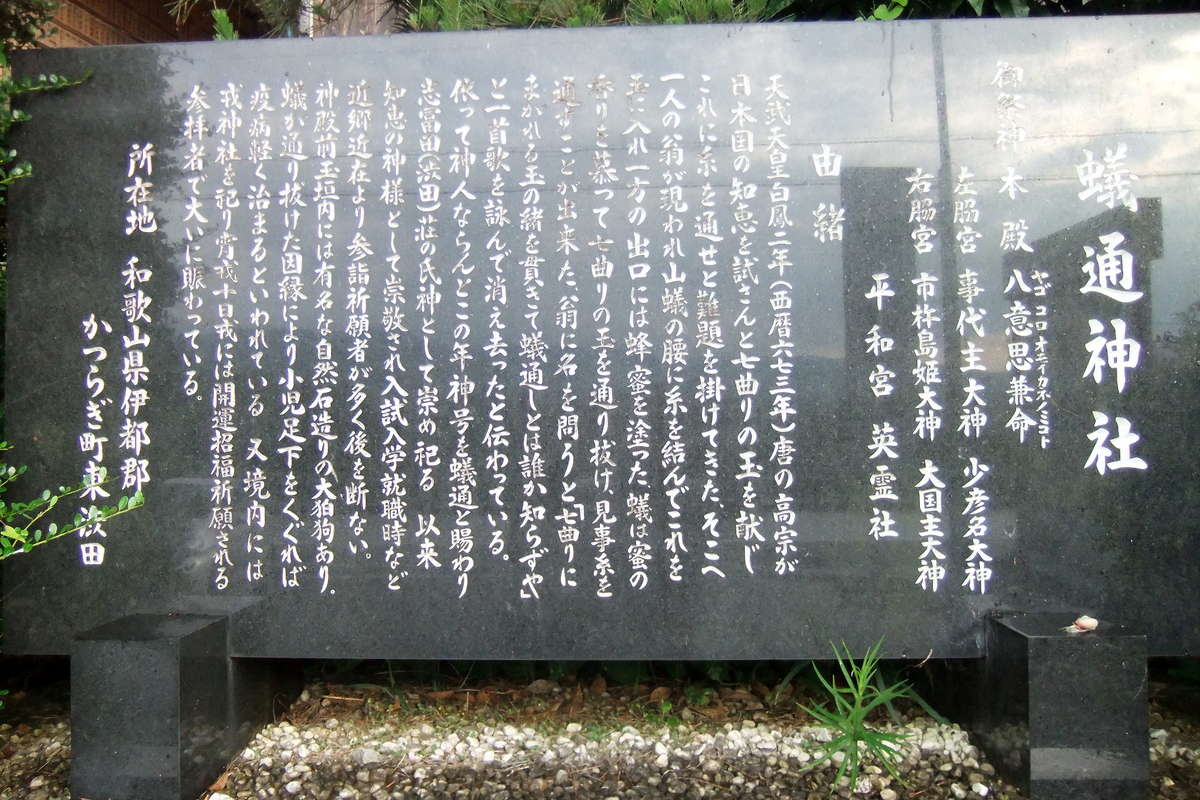 蟻通神社
御祭神 本殿 八意思兼命
ヤゴコロオモイカネノミコト
左脇宮 事代主大神 少彦名大神
右脇宮 市杵島姫大神 大国主大神
平和宮 英霊社
由緒
天武天皇白鳳二年(西暦六七三年)唐の高宗が
日本国の知恵を試さんと七曲りの玉を献じ
これに糸を通せと難題を掛けてきた、そこへ
一人の翁が現われ山蟻の腰に糸を結んでこれを
玉に入れ一方の出口には蜂蜜を塗った、蟻は蜜の
香りを慕って七曲りの玉を通り抜け、見事糸を
通すことが出来た、翁に名を問うと「七曲りに
まがれる玉の緒を貫きて蟻通しとは誰か知らずや」
と一首歌を詠んで消え去ったと伝わっている。
依って神人ならんとこの年神号を蟻通と賜わり
志富田(渋田)荘の氏神として崇め祀る 以来
知恵の神様として崇敬され入試入学就職時など
近郷近在より参詣祈願者が多く後を断ない。
神殿前玉垣内には有名な自然石造りの大狛狗あり。
蟻が通り抜けた因縁により小児足下をくぐれば
疫病軽く治まるといわれている 又境内には
戎神社を祀り宵戎十日戎には開運招福祈願される
参拝者で大いに賑わっている。
所在地 和歌山県伊都郡
かつらぎ町東渋田